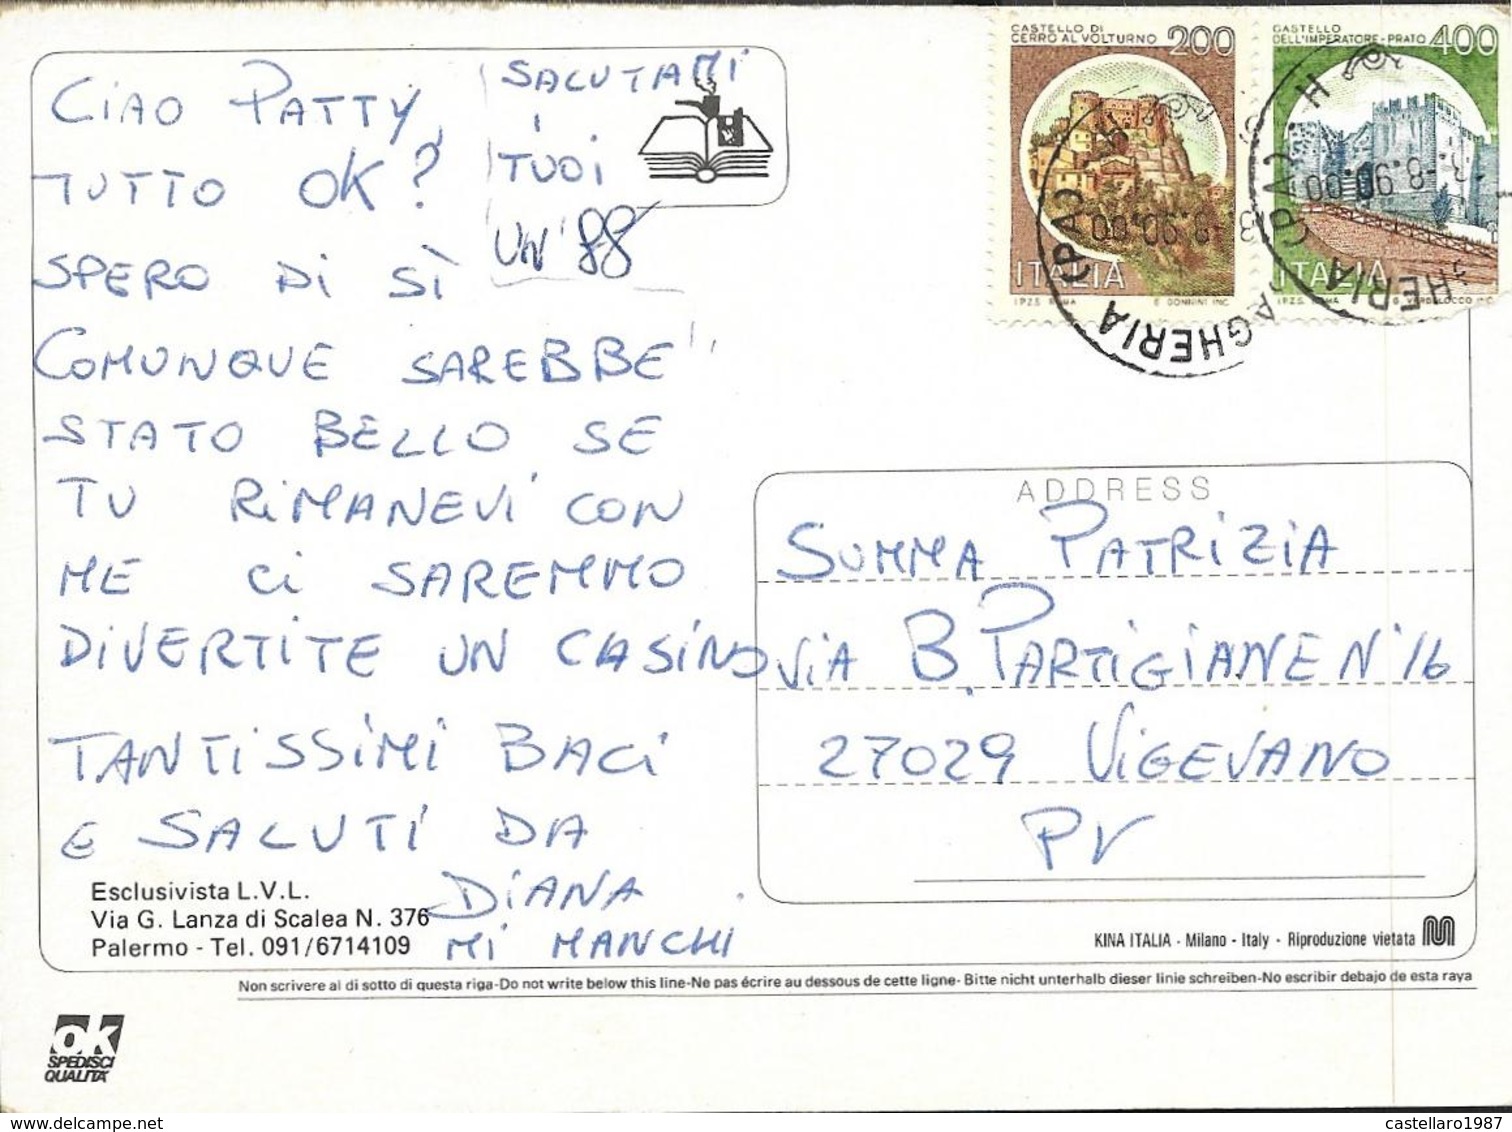 CIAO PATTY,
TUTTO OK?
SPERO DI SÌ
COMUNQUE SAREBBE
STATO BELLO SE
TU RIMANEVI CON
ME CI SAREMMO
DIVERTITE UN CASINO
TANTISSIMI BACI
E SALUTI DA
DIANA
MI MANCHI
SALUTAMI
I
TUOI
UN 88
CASTELLO DI
CERRO AL VOLTURNO 200
ITALIA
I.P.Z.S. ROMA E. DONNINI INC.
CASTELLO
DELL'IMPERATORE-PRATO 400
ITALIA
I.P.Z.S. ROMA G. VERDELOCCO INC.
BAGHERIA (PA)
ADDRESS
SUMMA PATRIZIA
VIA B. PARTIGIANE N 16
27029 VIGEVANO
PV
Esclusivista L.V.L.
Via G. Lanza di Scalea N. 376
Palermo - Tel. 091/6714109
KINA ITALIA - Milano - Italy - Riproduzione vietata
Non scrivere al di sotto di questa riga-Do not write below this line-Ne pas écrire au dessous de cette ligne- Bitte nicht unterhalb dieser linie schreiben-No escribir debajo de esta raya
ok
SPEDISCI
QUALITA'
castellaro1987